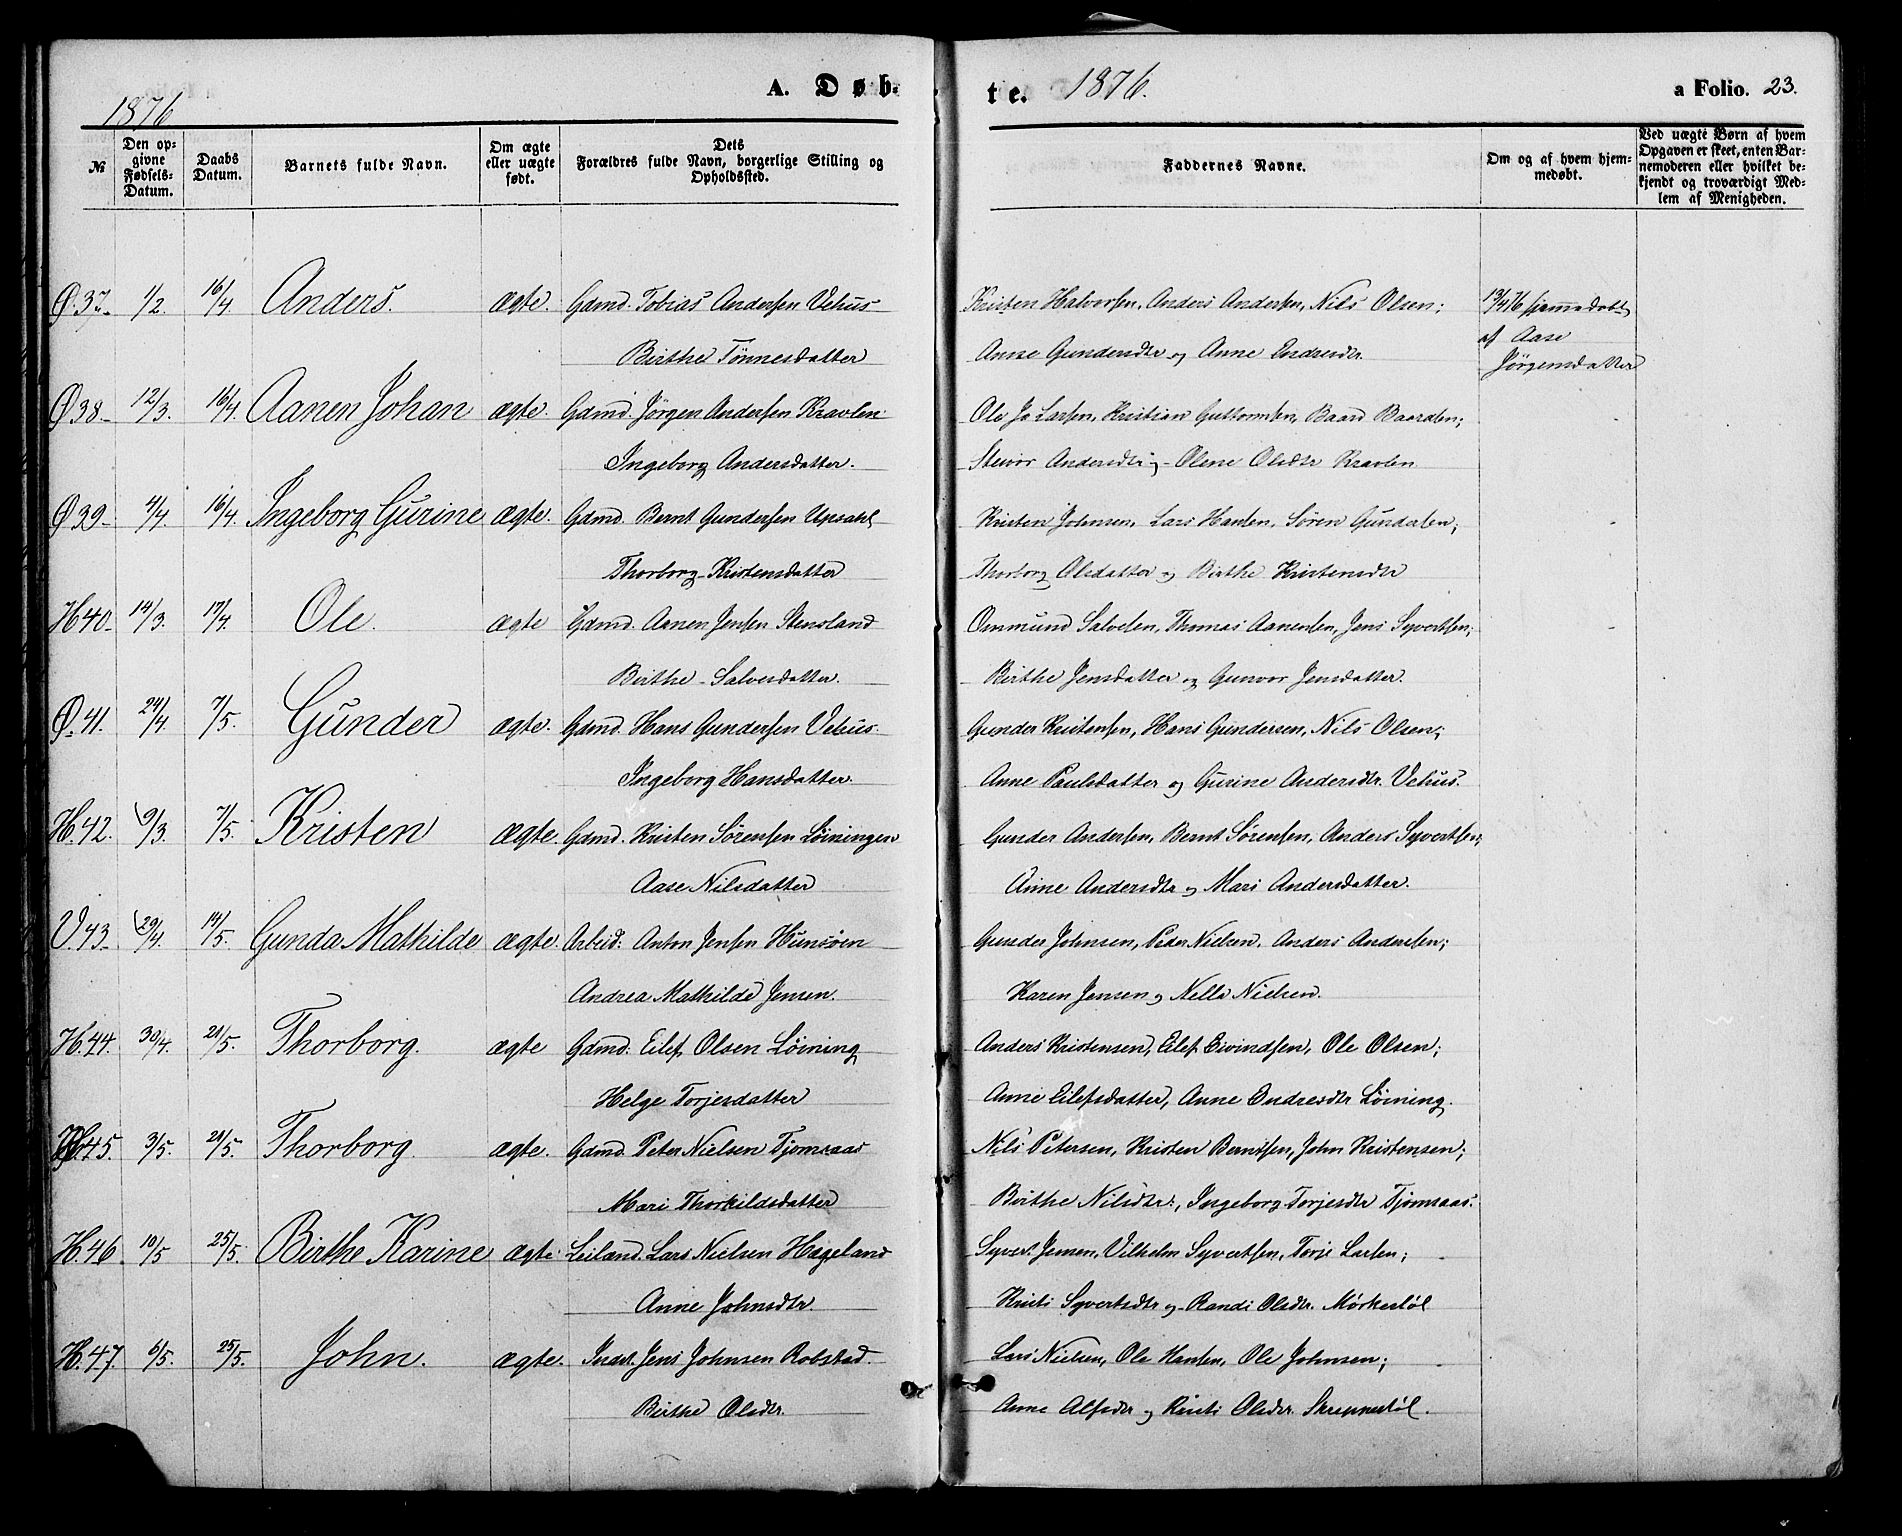 1876
A. Døb-
te. 1876.
a Folio. 23.
№
Den op-
givne
Fødsels-
Datum.
Daabs
Datum.
Barnets fulde Navn.
Om ægte
eller uægte
født.
Dets
Forældres fulde Navn, borgerlige Stilling og
Opholdssted.
Faddernes Navne.
Om og af hvem hjem-
medøbt.
Ved uægte Børn af hvem
Opgaven er skeet, enten Bar-
nemoderen eller hvilket be-
kjendt og troværdigt Med-
lem af Menigheden.
Ø.37. 1/2. 16/4. Anders. ægte. Gdmd. Tobias Andersen Vehus Kristen Halvorsen, Anders Andersen, Nils Olsen; 13/4 76 hjemmedøbt
Birthe Tønnesdatter Anne Gundersdtr og Anne Endresdtr. af Aase
Jörgensdatter
Ø 38. 12/3. 16/4. Aanen Johan ægte. Gdmd. Jörgen Andersen Kravlen Ole Js Larsen, Kristian Guttormsen, Baard Baardsen;
Ingeborg Andersdatter. Andersdtr og Olene Olsdtr Kravlen
Ø 39. 4/4. 16/4. Ingeborg Gurine ægte. Gdmd. Bernt Gundersen Upsahl Kristen Johnsen, Lars Hansen, Sören Gundersen;
Thorborg Kristensdatter Thorborg Olsdatter og Birthe Kristensdtr
H 40. 14/3. 17/4. Ole. ægte Gdmd. Aanen Jensen Stensland Ommund Salvesen, Thomas Aanensen, Jens Syvertsen;
Birthe Salvesdatter. Birthe Jensdatter og Gunvor Jensdatter.
Ø. 41. 24/4. 7/5. Gunder ægte. Gdmd. Hans Gundersen Vehus. Gunder Kristensen, Hans Gundersen, Nils Olsen;
Ingeborg Hansdatter. Anne Paulsdatter og Gurine Andersdtr. Vehus.
H. 42. 9/3. 7/5. Kristen ægte. Gdmd. Kristen Sörensen Löiningen Gunder Andersen, Bernt Sörensen, Anders Syvertsen;
Aase Nilsdatter Anne Andersdtr og Mari Andersdatter.
V. 43. 29/4. 14/5. Gunda Mathilde ægte. Arbeid. Anton Jensen Hunsöen Gunder Johnsen, Peder Nielsen, Anders Andersen;
Andrea Mathilde Jensen. Karen Jensen og Nella Nielsen.
H. 44. 30/4. 21/5. Thorborg. ægte Gdmd. Eilef Olsen Löining Anders Kristensen, Eilef Eivindsen, Ole Olsen;
Helge Torjesdatter Anne Eilefsdatter, Anne Endresdtr Löining.
45. 3/5. 21/5. Thorborg. ægte. Gdmd. Peter Nielsen Tjomsaas Nils Petersen, Kristen Berntsen, John Kristensen;
Mari Thorkildsdatter Birthe Nilsdtr., Ingeborg Torjesdtr Tjomsaas.
H. 46. 10/5 25/5. Birthe Karine ægte. Leiland. Lars Nielsen Hægeland Syvert Jensen, Vilhelm Syvertsen, Torje Larsen;
Anne Johnsdtr. Kristi Syvertsdtr og Randi Olsdtr. Mørkestöl
H. 47. 6/5. 25/5. John. ægte. Inderst. Jens Johnsen Robstad. Lars Nielsen, Ole Hansen, Ole Johnsen;
Birthe Olsdtr. Anne Alfsdtr og Kristi Olsdtr. Skreppestöl.